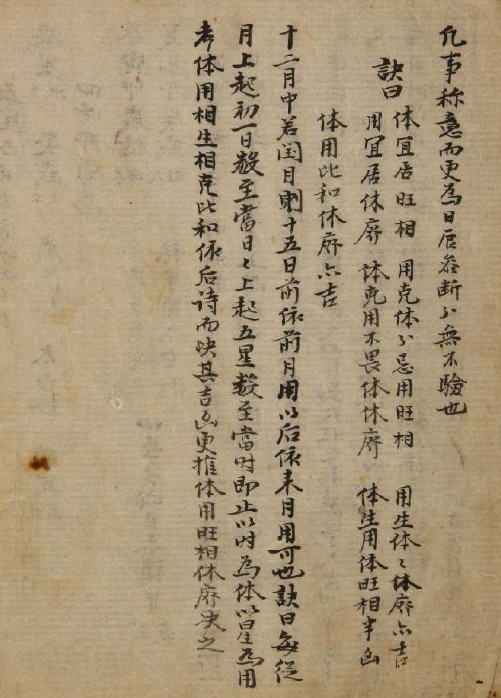 凡事称意而更為日辰叅断必無不驗也
訣曰 体宜居旺相 用克体必忌用旺相 用生体〻体廃亦吉
用宜居休廃 体克用不畏体休廃 体生用体旺相半凶
体用比和休廃亦吉
十二月中若闰月則十五日前依前月用以后依来月用可也訣曰每從
月上起初一日数至當日〻上起五星数至當时即止以时為体以星為用
考体用相生相克比和依后诗而快其吉凶更推体用旺相休廃决之